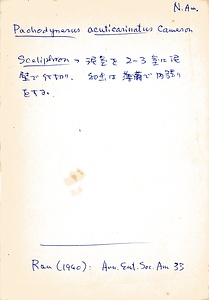 N. Am.
Pachodynerus acuticarinatus Cameron
Sceliphron の 泥室を 2~3 室に泥
壁で仕切り、
をする。
Rau (1940): Ann. Ent. Soc. Am 33